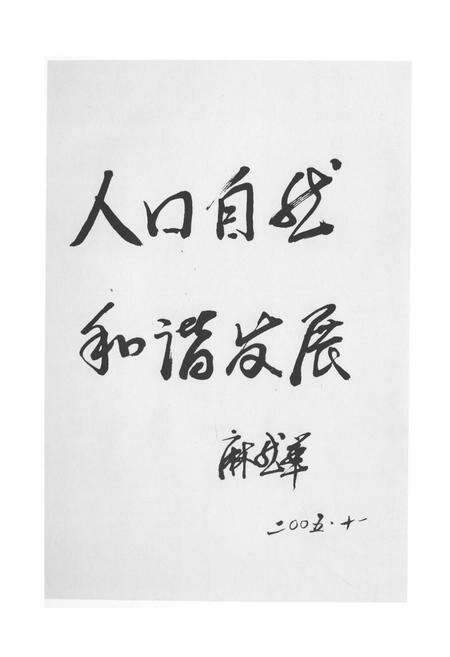 人口自然
和谐发展
二〇〇五·十一